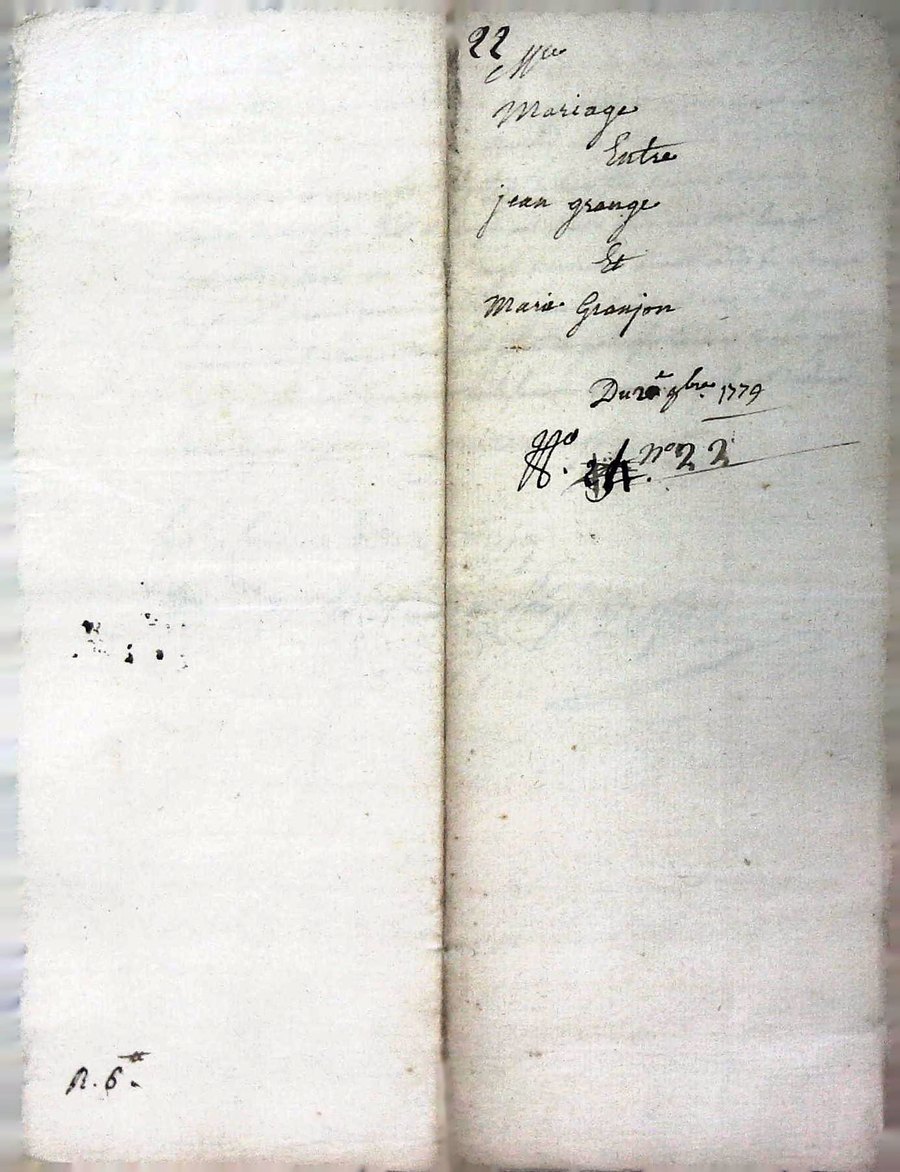 22
Mariage
Entre
jean grange
Et
Marie Granjon
Du 9bre. 1779
No 22
R. 6